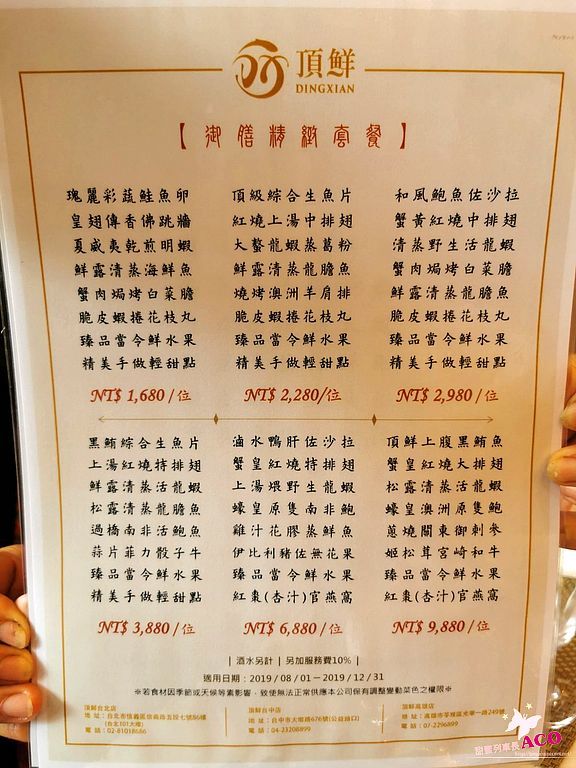 頂鮮
DINGXIAN
【御膳精緻套餐】
瑰麗彩蔬鮭魚卵
皇翅傳香佛跳牆
夏威夷乾煎明蝦
鮮露清蒸海鮮魚
蟹肉焗烤白菜膽
脆皮蝦捲花枝丸
臻品當令鮮水果
精美手做輕甜點
NT$ 1,680 /位
頂級綜合生魚片
紅燒上湯中排翅
大螯龍蝦蒸葛粉
鮮露清蒸龍膽魚
燒烤澳洲羊肩排
脆皮蝦捲花枝丸
臻品當令鮮水果
精美手做輕甜點
NT$ 2,280/位
和風鮑魚佐沙拉
蟹黃紅燒中排翅
清蒸野生活龍蝦
蟹肉焗烤白菜膽
鮮露清蒸龍膽魚
脆皮蝦捲花枝丸
臻品當令鮮水果
精美手做輕甜點
NT$ 2,980 /位
黑鮪綜合生魚片
上湯紅燒特排翅
鮮露清蒸活龍蝦
松露清蒸龍膽魚
過橋南非活鮑魚
蒜片菲力骰子牛
臻品當令鮮水果
精美手做輕甜點
NT$ 3,880 /位
滷水鴨肝佐沙拉
蟹皇紅燒特排翅
上湯煨野生龍蝦
蠔皇原隻南非鮑
雞汁花膠蒸鮮魚
伊比利豬佐無花果
臻品當令鮮水果
紅棗(杏汁)官燕窩
NT$ 6,880 /位
頂鮮上腹黑鮪魚
蟹皇紅燒大排翅
松露清蒸活龍蝦
蠔皇澳洲原隻鮑
蔥燒關東御刺參
姬松茸宮崎和牛
臻品當令鮮水果
紅棗(杏汁)官燕窩
NT$ 9,880 /位
| 酒水另計 | 另加服務費10% |
適用日期：2019 / 08 / 01－2019 / 12 / 31
※若食材因季節或天候等素影響，致使無法正常供應本公司保有調整變動菜色之權限※
頂鮮台北店
地 址：台北市信義區信義路五段七號86樓
(台北101大樓)
電 話：02-81018686
頂鮮台中店
地 址：台中市大墩路676號(公益路口)
電 話：04-23208899
頂鮮高雄店
地 址：高雄市苓雅區光華一路249號
電 話：07-2296899
甜蜜列車長ACO